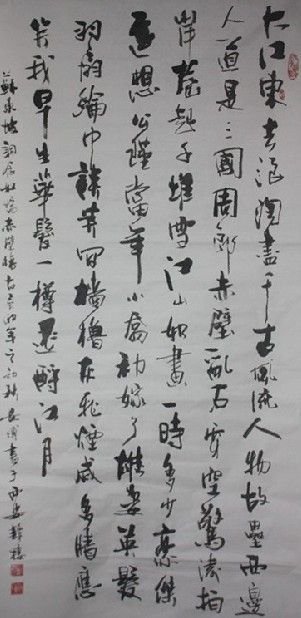 大江東去浪淘盡千古風流人物故壘西邊
人道是三國周郎赤壁亂石穿空驚濤拍
岸捲起千堆雪江山如畫一時多少豪傑
遙想公瑾當年小喬初嫁了雄姿英發
羽扇綸巾談笑間檣櫓灰飛煙滅多情應
笑我早生華髮一樽還酹江月
蘇東坡詞念奴嬌赤壁懷古年之初秋書於西安